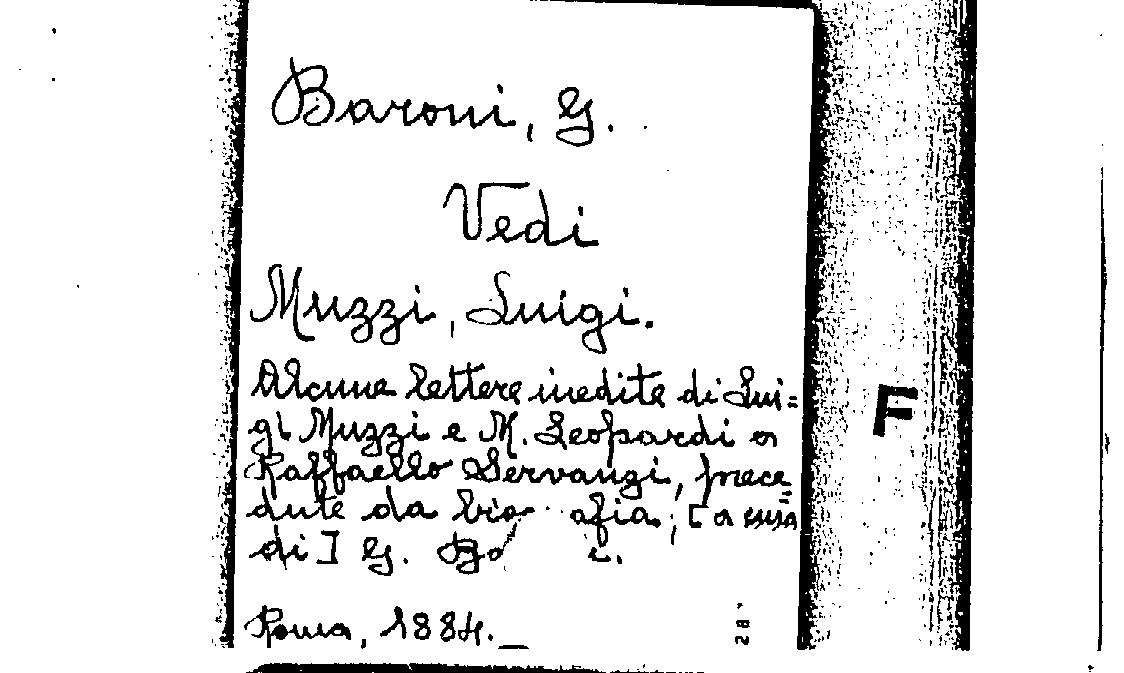 Baroni, G.
Vedi
Muzzi, Luigi.
Alcune lettere inedite di Lui=
gi Muzzi e M. Leopardi a
Raffaello Servanzi, prece=
dute da bio afia, [a cura
di] G. Ba i.
Roma, 1884._
F